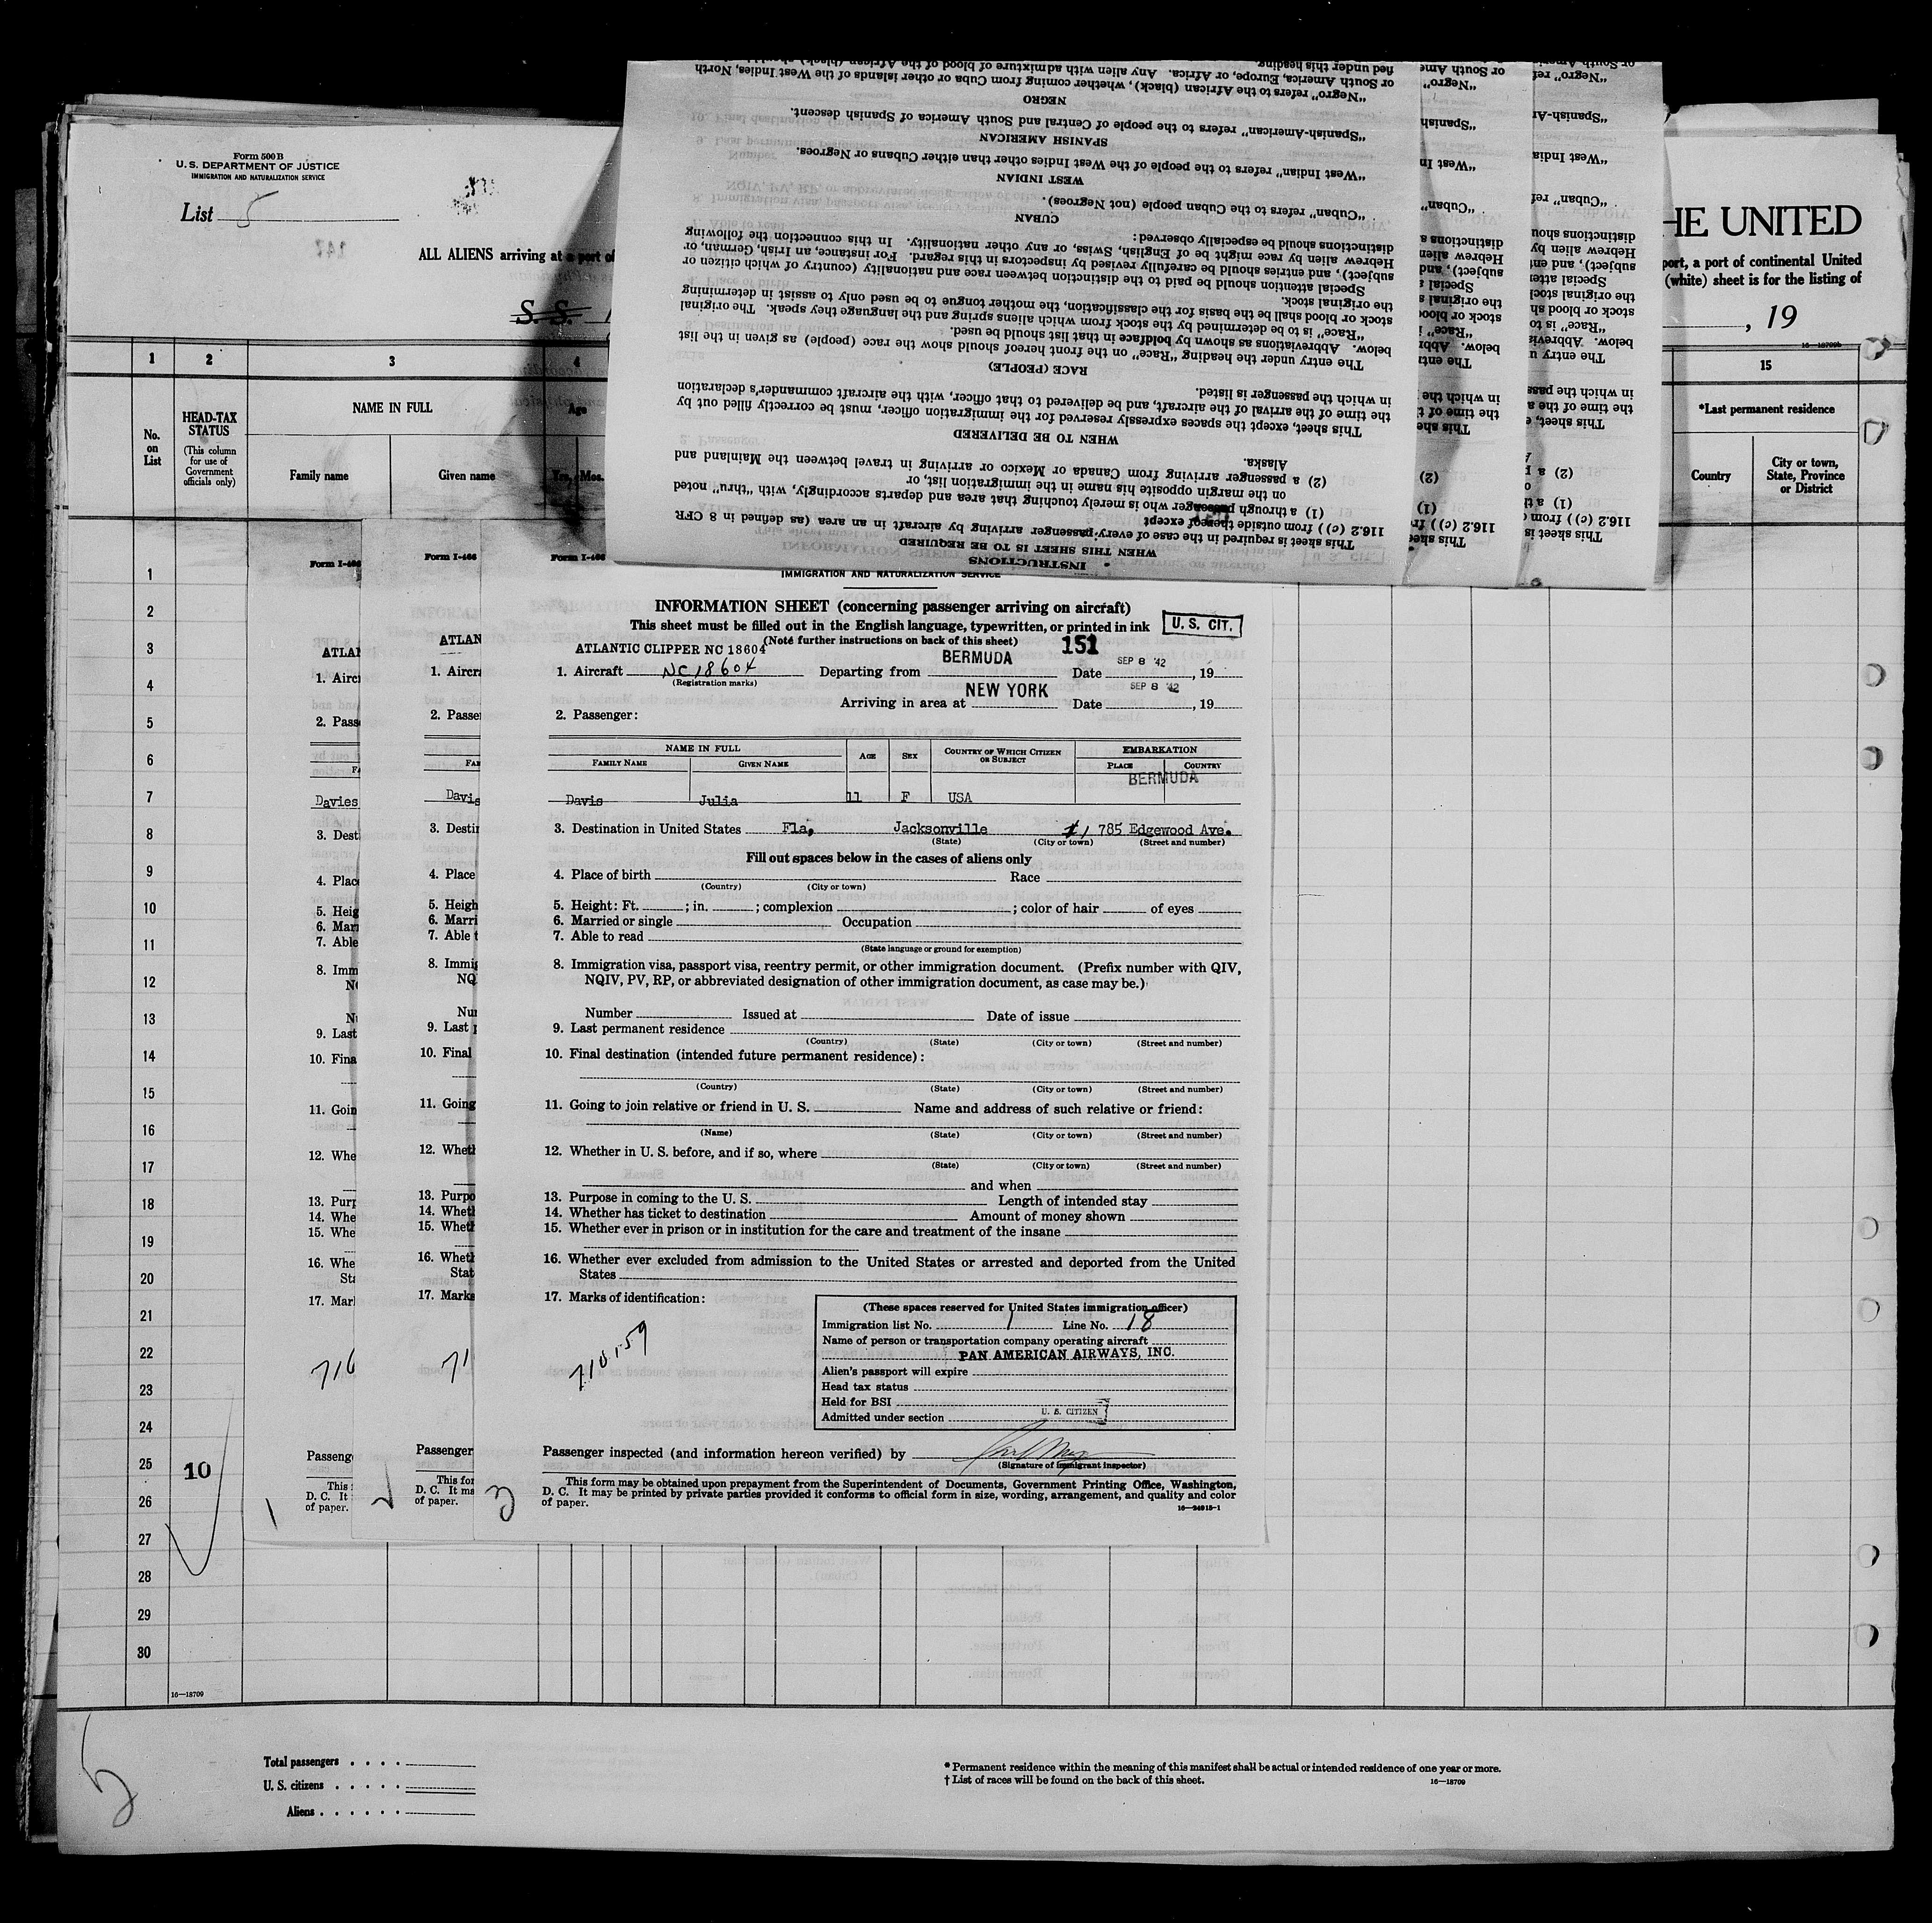 Form 500 B
U. S. DEPARTMENT OF JUSTICE
IMMIGRATION AND NATURALIZATION SERVICE
List 5
ALL ALIENS arriving at a port of
S. S.
HE UNITED
port, a port of continental United
(white) sheet is for the listing of
, 19
16—18709b
1 2 3 4 15
No. on List
HEAD-TAX STATUS
(This column for use of Government officials only)
NAME IN FULL
Family name Given name
Age
Yrs. Mos.
*Last permanent residence
Country City or town, State, Province or District
fied under this heading.
or South America, Europe, or Africa. Any alien with admixture of blood of the African (black)
"Negro" refers to the African (black), whether coming from Cuba or other islands of the West Indies, North
NEGRO
"Spanish-American" refers to the people of Central and South America of Spanish descent.
SPANISH AMERICAN
"West Indian" refers to the people of the West Indies other than either Cubans or Negroes.
WEST INDIAN
"Cuban" refers to the Cuban people (not Negroes).
CUBAN
distinctions should be especially observed:
Hebrew alien by race might be of English, Swiss, or any other nationality. In this connection the following
subject), and entries should be carefully revised by inspectors in this regard. For instance, an Irish, German, or
Special attention should be paid to the distinction between race and nationality (country of which citizen or
the original stock.
stock or blood shall be the basis for the classification, the mother tongue to be used only to assist in determining
"Race" is to be determined by the stock from which aliens spring and the language they speak. The original
below. Abbreviations as shown by boldface in that list should be used.
The entry under the heading "Race" on the front hereof should show the race (people) as given in the list
RACE (PEOPLE)
in which the passenger is listed.
the time of the arrival of the aircraft, and be delivered to that officer, with the aircraft commander's declaration
This sheet, except the spaces expressly reserved for the immigration officer, must be correctly filled out by
WHEN TO BE DELIVERED
Alaska.
(2) a passenger arriving from Canada or Mexico or arriving in travel between the Mainland and
on the margin opposite his name in the immigration list, or
(1) a through passenger who is merely touching that area and departs accordingly, with "thru" noted
116.2 (c)) from outside thereof except
This sheet is required in the case of every passenger arriving by aircraft in an area (as defined in 8 CFR
WHEN THIS SHEET IS TO BE REQUIRED
INSTRUCTIONS
Form I-466 Form I-466 Form I-466
IMMIGRATION AND NATURALIZATION SERVICE
INFORMATION SHEET (concerning passenger arriving on aircraft)
This sheet must be filled out in the English language, typewritten, or printed in ink
U. S. CIT.
(Note further instructions on back of this sheet)
151
ATLANTIC CLIPPER NC 18604
1. Aircraft NC18604 Departing from BERMUDA Date SEP 8 '42, 19
(Registration marks)
Arriving in area at NEW YORK Date SEP 8 '42, 19
2. Passenger:
NAME IN FULL
FAMILY NAME GIVEN NAME AGE SEX COUNTRY OF WHICH CITIZEN OR SUBJECT EMBARKATION
PLACE COUNTRY
BERMUDA
Davis Julia 11 F USA
3. Destination in United States Fla, Jacksonville 785 Edgewood Ave.
(State) (City or town) (Street and number)
Fill out spaces below in the cases of aliens only
4. Place of birth Race
(Country) (City or town)
5. Height: Ft. ; in. ; complexion ; color of hair of eyes
6. Married or single Occupation
7. Able to read
(State language or ground for exemption)
8. Immigration visa, passport visa, reentry permit, or other immigration document. (Prefix number with QIV,
NQIV, PV, RP, or abbreviated designation of other immigration document, as case may be.)
Number Issued at Date of issue
9. Last permanent residence
(Country) (State) (City or town) (Street and number)
10. Final destination (intended future permanent residence):
(Country) (State) (City or town) (Street and number)
11. Going to join relative or friend in U. S. Name and address of such relative or friend:
(Name) (State) (City or town) (Street and number)
12. Whether in U. S. before, and if so, where
(State) (City or town) (Street and number)
and when
13. Purpose in coming to the U. S. Length of intended stay
14. Whether has ticket to destination Amount of money shown
15. Whether ever in prison or in institution for the care and treatment of the insane
16. Whether ever excluded from admission to the United States or arrested and deported from the United
States
17. Marks of identification:
710159
(These spaces reserved for United States immigration officer)
Immigration list No. 1 Line No. 18
Name of person or transportation company operating aircraft
PAN AMERICAN AIRWAYS, INC.
Alien's passport will expire
Head tax status
Held for BSI
Admitted under section U. S. CITIZEN
Passenger inspected (and information hereon verified) by
(Signature of immigrant inspector)
This form may be obtained upon prepayment from the Superintendent of Documents, Government Printing Office, Washington,
D. C. It may be printed by private parties provided it conforms to official form in size, wording, arrangement, and quality and color
of paper.
16—24915-1
1
2
3
4
5
6
7
8
9
10
11
12
13
14
15
16
17
18
19
20
21
22
23
24
25 10
26
27
28
29
30
16—18709
Total passengers
U. S. citizens
Aliens
* Permanent residence within the meaning of this manifest shall be actual or intended residence of one year or more.
† List of races will be found on the back of this sheet.
16—18709